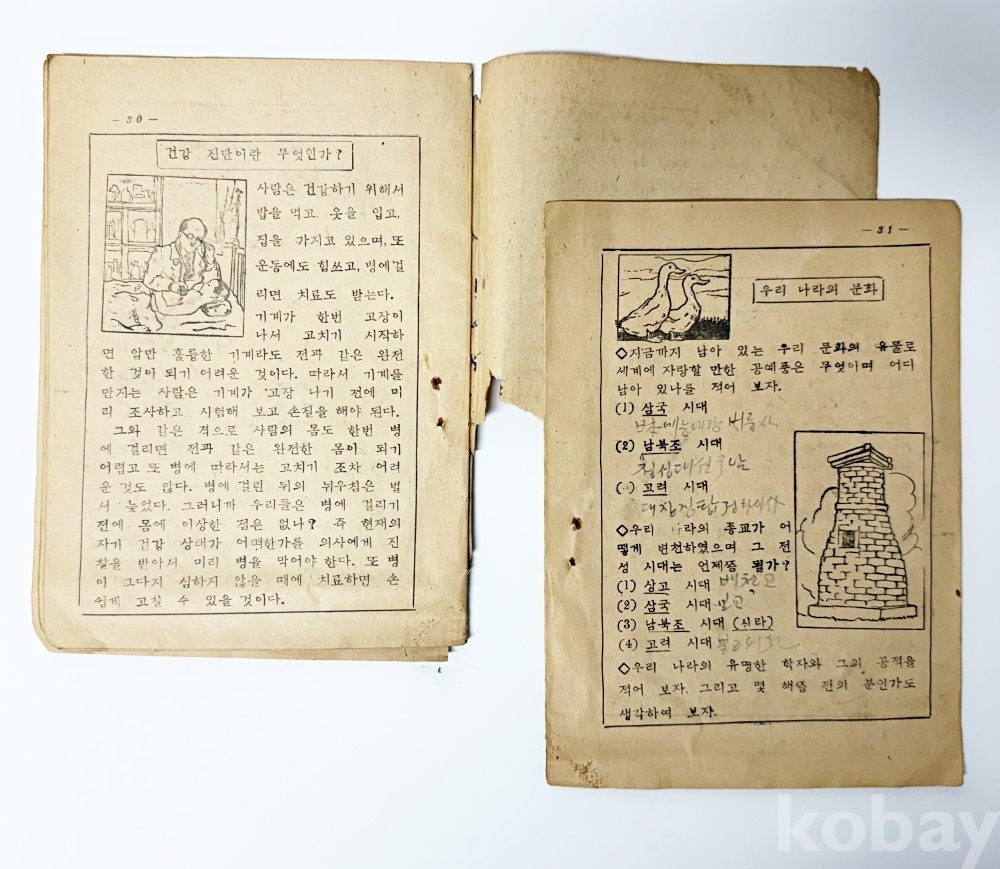 — 30 —
건강 진단이란 무엇인가?
사람은 건강하기 위해서
밥을 먹고, 옷을 입고,
집을 가지고 있으며, 또
운동에도 힘쓰고, 병에걸
리면 치료도 받는다.
기계가 한번 고장이
나서 고치기 시작하
면 암만 훌륭한 기계라도 전과 같은 완전
한 것이 되기 어려운 것이다. 따라서 기계를
만지는 사람은 기계가 고장 나기 전에 미
리 조사하고 시험해 보고 손질을 해야 된다.
그와 같은 격으로 사람의 몸도 한번 병
에 걸리면 전과 같은 완전한 몸이 되기
어렵고 또 병에 따라서는 고치기 조차 어려
운 것도 많다. 병에 걸린 뒤의 뉘우침은 벌
서 늦었다. 그러니까 우리들은 병에 걸리기
전에 몸에 이상한 점은 없나? 즉 현재의
자기 건강 상태가 어떠한가를 의사에게 진
찰을 받아서 미리 병을 막어야 한다. 또 병
이 그다지 심하지 않을 때에 치료하면 손
쉽게 고칠 수 있을 것이다.
— 31 —
우리 나라의 문화
◇지금까지 남아 있는 우리 문화의 유물로
세계에 자랑할 만한 공예품은 무엇이며 어디
남아 있나를 적어 보자.
(1) 삼국 시대
(2) 남북조 시대
첨성대
( ) 고려 시대
대장경
◇우리 나라의 종교가 어
떻게 변천하였으며 그 전
성 시대는 언제쯤 될가?
(1) 상고 시대
(2) 삼국 시대 불교
(3) 남북조 시대 (신라)
(4) 고려 시대
◇우리 나라의 유명한 학자와 그의 공적을
적어 보자. 그리고 몇 해쯤 전의 분인가도
생각하여 보자.
kobay